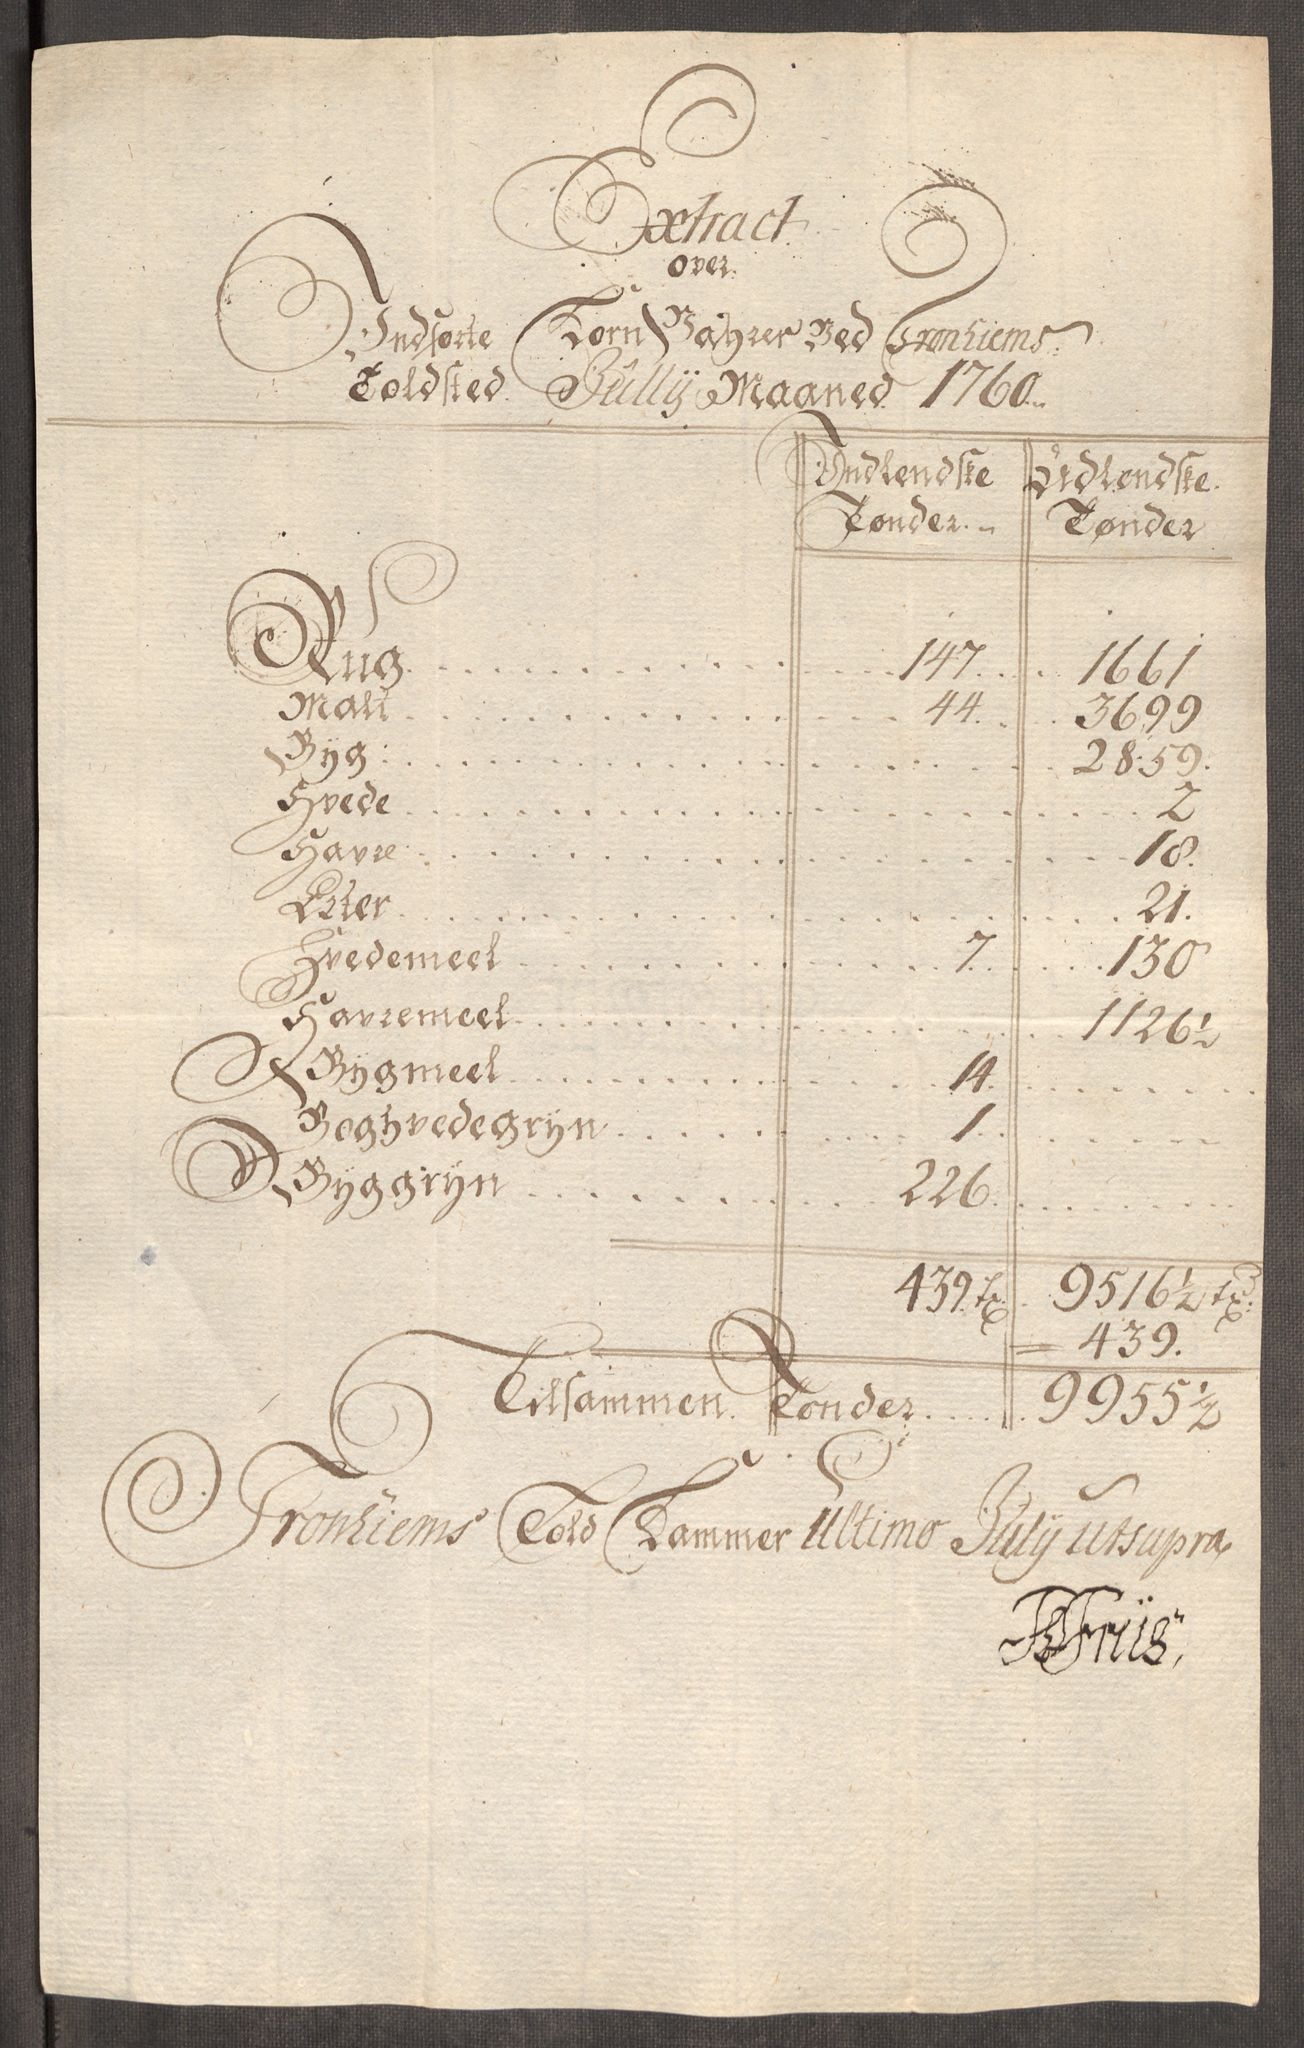 Extract
over
Indførte Korn Vahrer Ved Tronhiems
Toldsted Jullÿ Maaned 1760
Indlendske Udlendske
Tønder Tønder
Rug 147 1661
Malt 44 3699
Bÿg 2859
Hvede 2
Havre 18
Erter 21
Hvedemeel 7 130
Havremeel 1126½
Bÿgmeel 14
Boghvedegrÿn 1
Bÿggrÿn 226
439 tr 9516½ tr
439
Tilsammen Tønder 9955½
Tronhiems Told Kammer Ultimo Julÿ utsupra
Friis